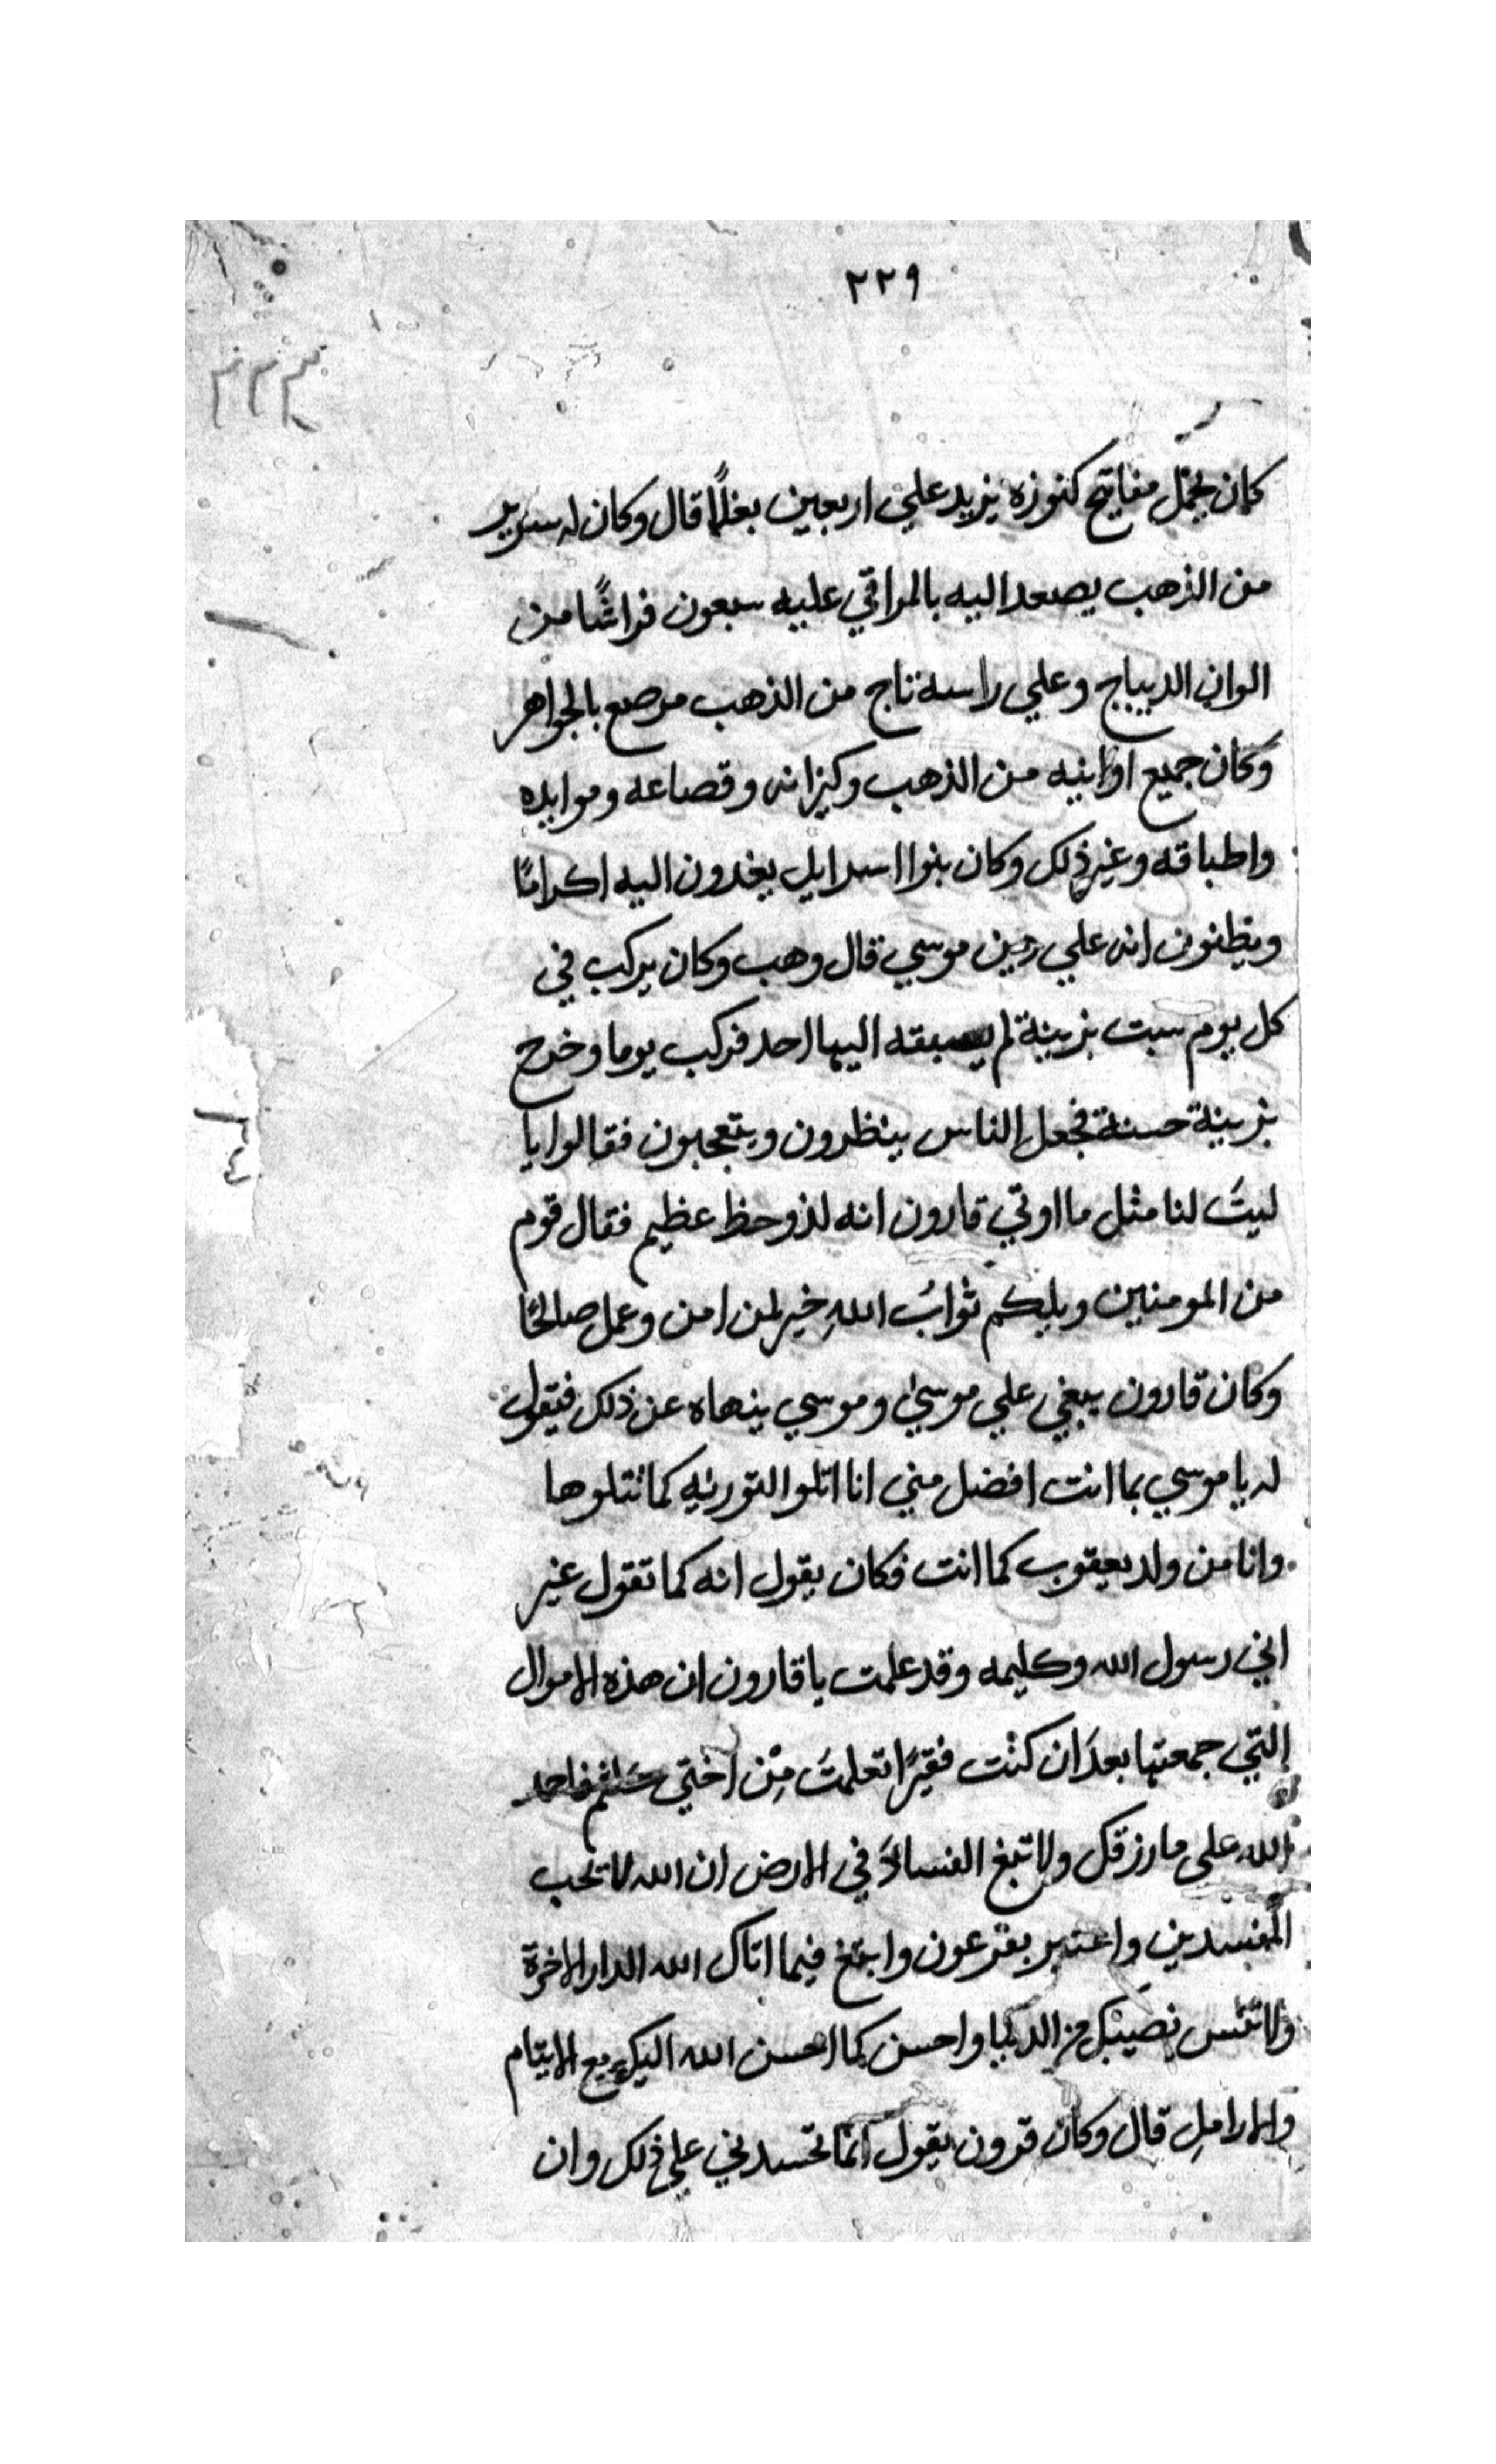 ٢٢٩
٢٢٣
كان يحمل مفاتيح كنوزه يزيد علي اربعين بغلًا قال وكان له سرير
من الذهب يصعد اليه بالمراقي عليه سبعون فراشًا من
الوان الديباج وعلي راسه تاج من الذهب مرصع بالجواهر
وكان جميع اوانيه من الذهب وكيزانه وقصاعه وموايده
واطباقه وغير ذلك وكان بنوا اسرايل يغدون اليه اكرامًا
ويظنون انه علي دين موسي قال وهب وكان يركب في
كل يوم سبت بزينة لم يسبقه اليها احد فركب يوما وخرج
بزينة حسنة فجعل الناس ينظرون ويتعجبون فقالوا يا
ليتَ لنا مثل ما اوتي قارون انه لذو حظ عظيم فقال قوم
من المومنين ويلكم ثوابُ اللهِ خير لمن امن وعمل صالحًا
وكان قارون يبغي علي موسيٰ وموسي ينهاه عن ذلك فيقول
له يا موسي بما انت افضل مني انا اتلوا التوريه كما تتلوها
وانا من ولد يعقوب كما انت فكان يقول انه كما تقول غير
اني رسول الله وكليمه وقد علمت يا قارون ان هذه الاموال
التي جمعتها بعدَ ان كنت فقيرًا تعلمتَ مِن اختي فاحمد
الله على ما رزقك ولا تبغ الفسادَ في الارض ان الله لا تحب
المفسدين واعتبر بفرعون وابتغ فيما اتاك الله الدار الاخرة
ولا تنس نصيبك من الدنيا واحسن كما احسن الله اليك مع الايتام
والارامل قال وكان قرون يقول انما تحسدني علي ذلك وان